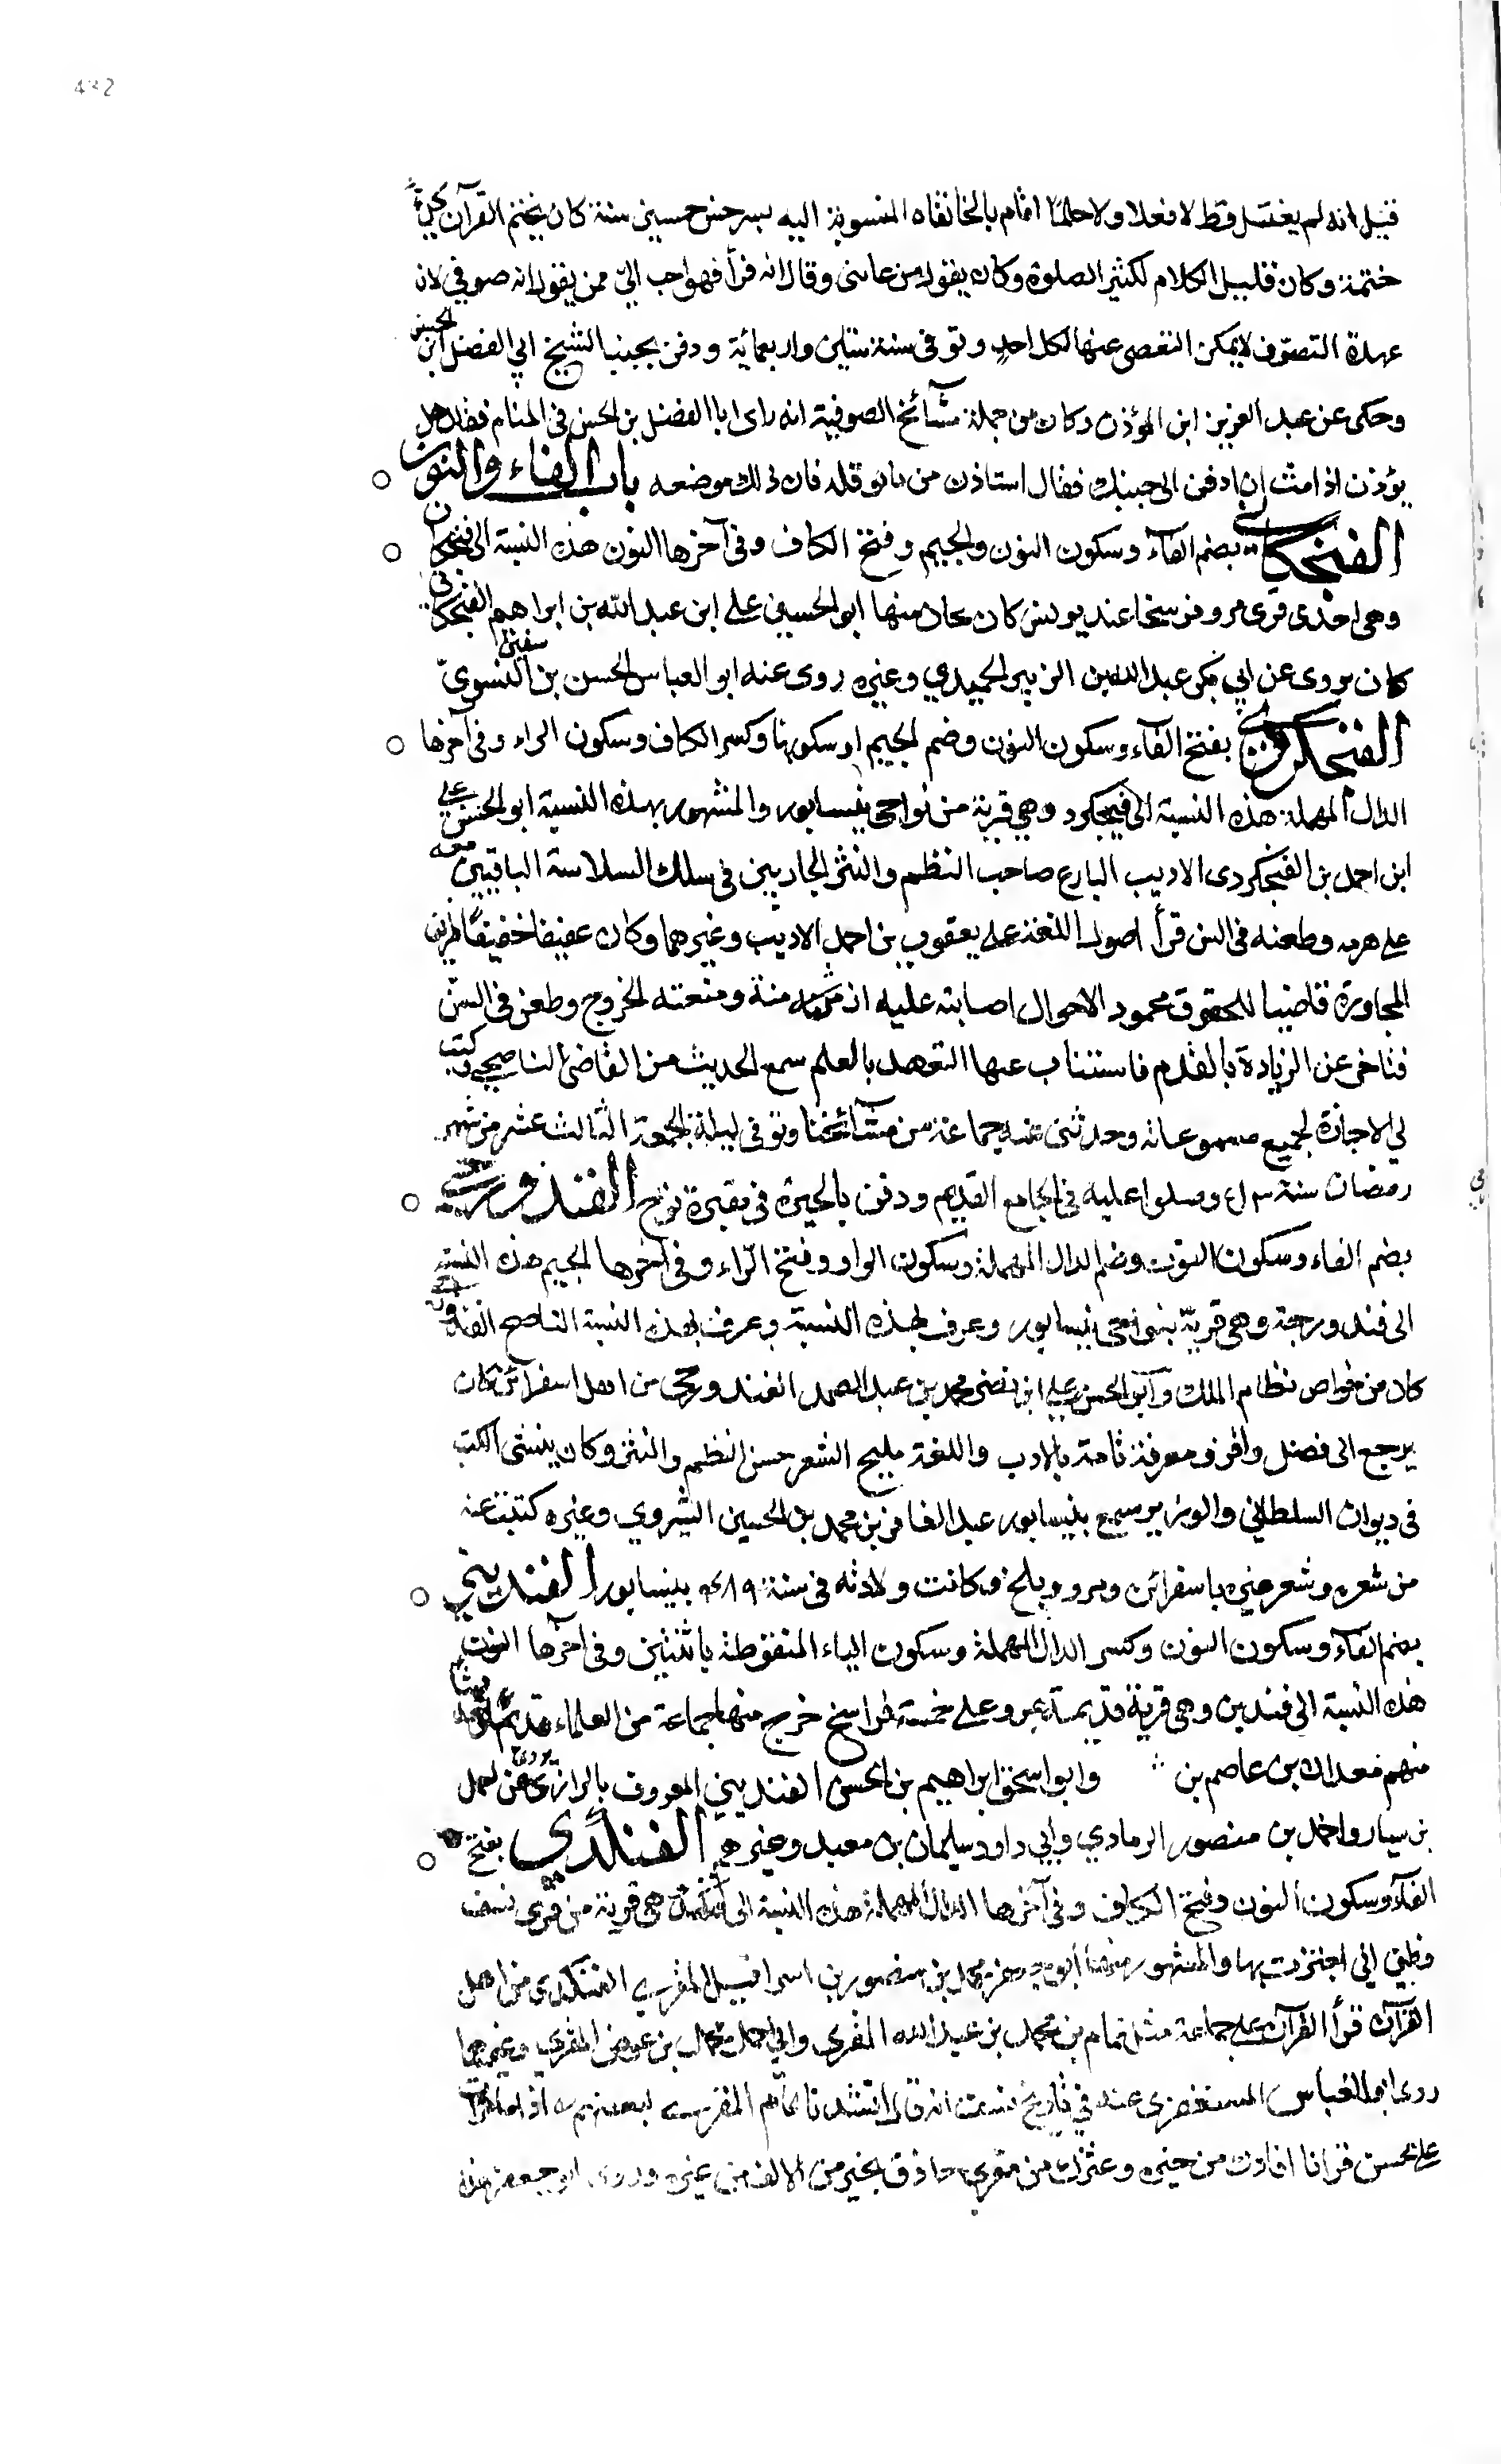 432
قيل انه لم يغتسل قط لا فعلا ولا حلما اقام بالخانقاه المنسوبة اليه بسرخس خمسين سنة كان يختم القرآن كل
ختمة وكان قليل الكلام لكثير الصلوة وكان يقول من عاننى وقال انه قرأ فهو احب الي ممن يقول انه صوفي لان
عهدة التصوف لا يمكن التفصى عنها لكل احد وتوفى سنة ستين واربعمائة ودفن بجنب الشيخ ابي الفضل ابن الحسن
وحكى عن عبد العزيز ابن المؤذن وكان من جملة مشائخ الصوفية انه راى ابا الفضل بن الحسن فى المنام فقلت هل
يؤذن اذا مت ان ادفن الى جنبك فقال استاذن من بابو قله فان ذلك موضعه باب الفاء والنون
الفنجكانى بضم الفاء وسكون النون والجيم وفتح الكاف وفى آخرها النون هذه النسبة الى فنجكان
وهى احدى قرى مرو فرسخا عند يونس كان منها ابو الحسين على ابن عبد الله بن ابراهيم الفنجكانى
كان يروى عن ابي بكر عبد الله بن الزبير الحميدي وغيره روى عنه ابو العباس الحسن بن سفين النسوي
الفنجكردي بفتح الفاء وسكون النون وضم الجيم او سكونها وكسر الكاف وسكون الراء وفى آخرها
الدال المهملة هذه النسبة الى فنجكرد وهي قرية من نواحى نيسابور والمشهور بهذه النسبة ابو الحسن على
ابن احمد بن الفنجكردى الاديب البارع صاحب النظم والنثر الجاريين فى سلك السلاسة الباقيين معه
على هرمه وطعنه فى السن قرأ اصول اللغة على يعقوب بن احمد الاديب وغيرهما وكان عفيفا خفيفا ظريف
المجاورة قاضيا للحقوق محمود الاحوال اصابته عليه ازمنة ومنعته الخروج وطعن فى السن
فتاخر عن الزيادة بالقدم فاستناب عنها التعهد بالعلم سمع الحديث من القاضى الناصحي وكتب
لي الاجازة لجميع مسموعاته وحدثنى عنه جماعة من مشائخنا وتوفى ليلة الجمعة الثالث عشر من شهر
رمضان سنة وصلوا عليه فى الجامع القديم ودفن بالحيرة فى مقبرة نوح الفندورجى
بضم الفاء وسكون النون وضم الدال المهملة وسكون الواو وفتح الراء وفى آخرها الجيم هذه النسبة
الى فندورجة وهى قرية بنواحى نيسابور وعرف بهذه النسبة وعرف بهذه النسبة الناصح الفندورجى
كان من خواص نظام الملك وابى الحسن على ابن نصر محمد بن عبد الصمد الفندورجى من اهل اسفرائن كان
يرجع الى فضل وافر ومعرفة تامة بالادب واللغة مليح الشعر حسن النظم والنثر وكان ينشئ الكتب
فى ديوان السلطانى والوزير سمع بنيسابور عبد الغافر بن محمد بن الحسين الشيروي وغيره كتبت عنه
من شعره وشعر غيره باسفرائن ومرو وبلخ وكانت ولادته فى سنة ٤٨٩ بنيسابور الفنديني
بضم الفاء وسكون النون وكسر الدال المهملة وسكون الياء المنقوطة باثنتين وفى اخرها النون
هذه النسبة الى فندين وهى قرية قديمة بمرو على خمسة فراسخ خرج منها جماعة من العلماء قديما وحديثا
منهم معدان بن عاصم بن وابو اسحق ابراهيم بن الحسن الفنديني المعروف بالرازي يروى عن احمد
بن سيار واحمد بن منصور الرمادي وابي داود سليمان بن معبد وغيرهم الفنكدي بفتح
الفاء وسكون النون وفتح الكاف وفى آخرها الدال المهملة هذه النسبة الى فنكد هى قرية من قرى نسف
وظنى انى اجتزت بها والمشهور منها ابو جعفر محمد بن منصور بن اسرافيل المقري الفنكدي من اهل
القرآن قرأ القرآن على جماعة مثل تمام بن محمد بن عبد الله المقري وابي احمد محمد بن عوض المقري وغيرهما
روى ابو العباس المستغفري عنه فى تاريخ نسف انه قال انشدنا تمام المقري لبعضهم اذا ما قرأ
على محسن قرانا افادك من خيره وعشرك من مقري حاذق بخير من الالف من غيره وروى ابو جعفر هذا